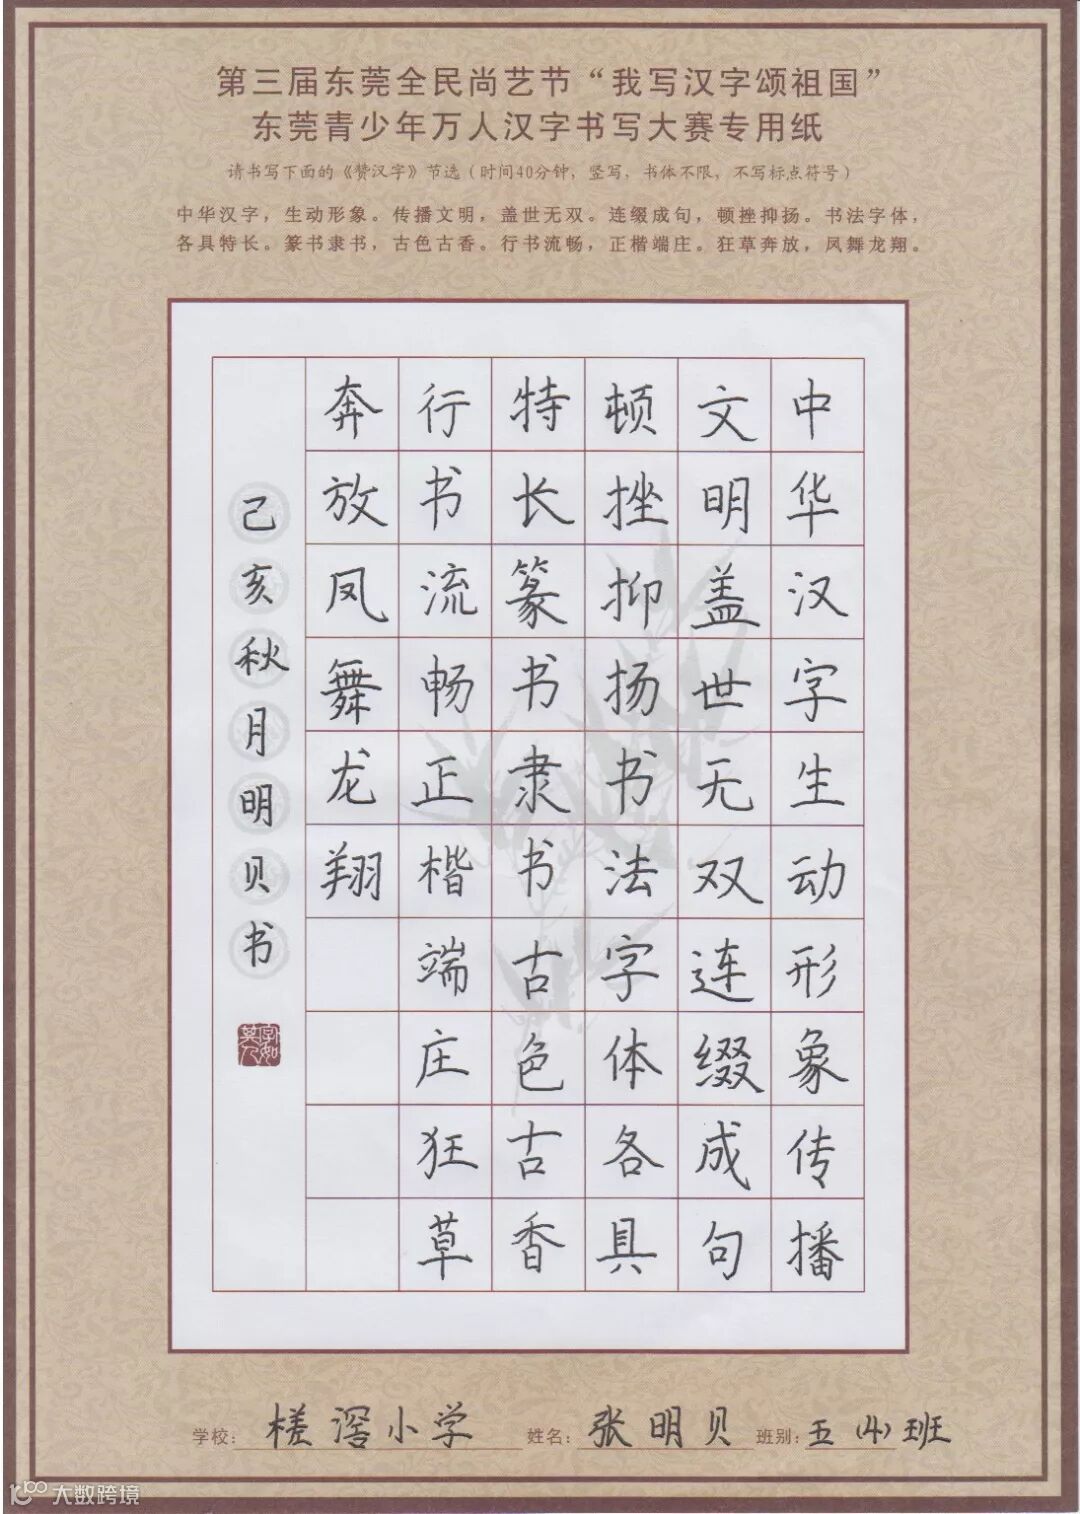 第三届东莞全民尚艺节“我写汉字颂祖国”
东莞青少年万人汉字书写大赛专用纸
请书写下面的《赞汉字》节选（时间40分钟，竖写，书体不限，不写标点符号）
中华汉字，生动形象。传播文明，盖世无双。连缀成句，顿挫抑扬。书法字体，
各具特长。篆书隶书，古色古香。行书流畅，正楷端庄。狂草奔放，凤舞龙翔。
中华汉字生动形象传播
文明盖世无双连缀成句
顿挫抑扬书法字体各具
特长篆书隶书古色古香
行书流畅正楷端庄狂草
奔放凤舞龙翔
己亥秋月明贝书
学校：槎滘小学 姓名：张明贝 班别：五(4)班
大数跨境